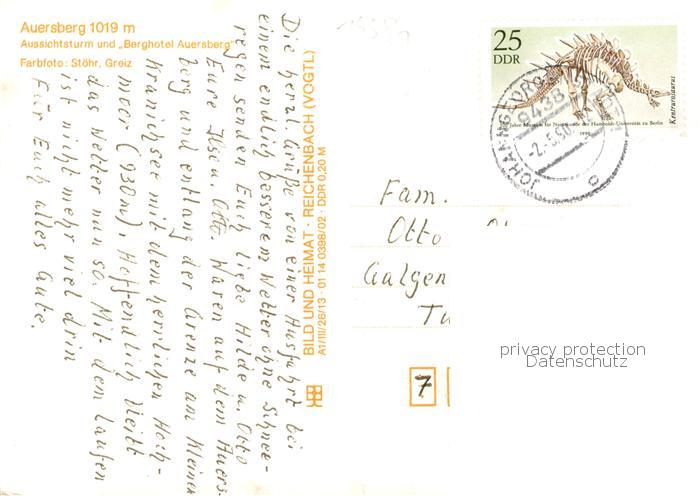 Auersberg 1019 m
Aussichtsturm und „Berghotel Auersberg"
Farbfoto: Stöhr, Greiz
Die herzl. Grüße von einer Ausfahrt bei
einem endlich besserem Wetter ohne Schnee-
regen senden Euch liebe Hilde u. Otto
Eure Ilse u. Otto. Waren auf dem Auers-
berg und entlang der Grenze am Kleinen
Kranichsee mit dem herrlichen Hoch-
moor (930 m). Hoffendlich bleibt
das Wetter nun so. Mit dem Laufen
ist nicht mehr viel drin
Für Euch alles Gute.
BILD UND HEIMAT · REICHENBACH (VOGTL)
A1/III/26/13 · 01 14 0398/02 · DDR 0,20 M
25
DDR
Kentrurosaurus
Jahre Museum für Naturkunde der Humboldt-Universität zu Berlin
1990
9438
-2.-5.90
c
Fam.
Otto
Galgen
Tu
7
privacy protection
Datenschutz